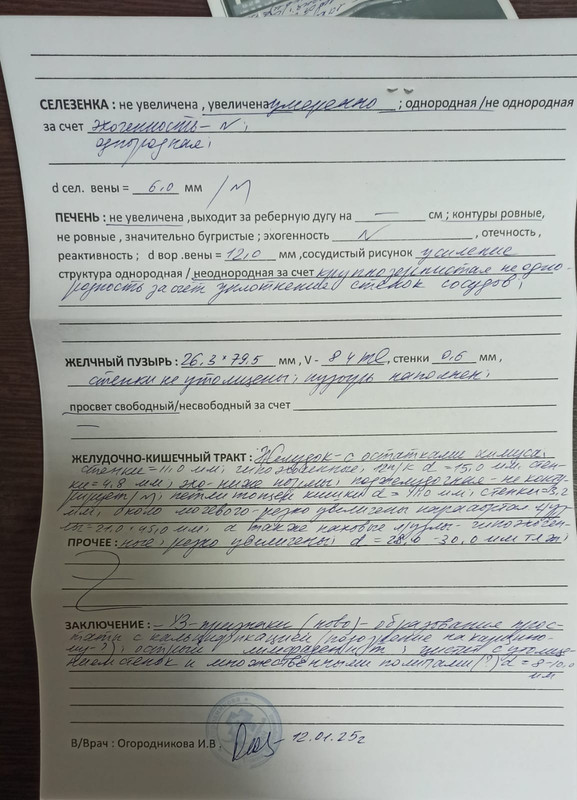 СЕЛЕЗЕНКА : не увеличена , увеличена умеренно ; однородная /не однородная
за счет эхогенность – N ;
однородная ;
d сел. вены = 6,0 мм / N
ПЕЧЕНЬ : не увеличена ,выходит за реберную дугу на — см ; контуры ровные,
не ровные , значительно бугристые ; эхогенность N , отечность ,
реактивность ; d вор .вены = 12,0 мм ,сосудистый рисунок усиление
структура однородная / неоднородная за счет крупнозернистая неодно-
родность за счет уплотнения стенок сосудов ;
ЖЕЛЧНЫЙ ПУЗЫРЬ : 26,3 * 79,5 мм , V - 84 ml , стенки 0,6 мм ,
стенки не утолщены ; пузырь наполнен ;
просвет свободный/несвободный за счет
—
ЖЕЛУДОЧНО-КИШЕЧНЫЙ ТРАКТ : Желудок – с остатками химуса,
стенки = 11,0 мм ; гипоэхогенные ; 12п/к d = 15,0 мм, стен-
ки = 4,8 мм ; эхо- ниже нормы ; поджелудочная – не
/ N / ; петли тощей кишки d = мм ; стенки =
мм, около мочевого – резко увеличены
= 21,0 * 45,0 мм ; а также паховые л/узлы – гипоэхоген-
ПРОЧЕЕ : ные ; резко увеличены ; d = 28,0 -30,0 мм
ЗАКЛЮЧЕНИЕ : – УЗ-признаки (ново)- образования прос-
таты с кальцификацией (подозрение на карцино-
му-?) ; острый лимфаденит ; цистит с утолще-
нием стенок и множественными полипами (?) d = 8-10,0
мм
В/Врач : Огородникова И.В . 12.01.25г